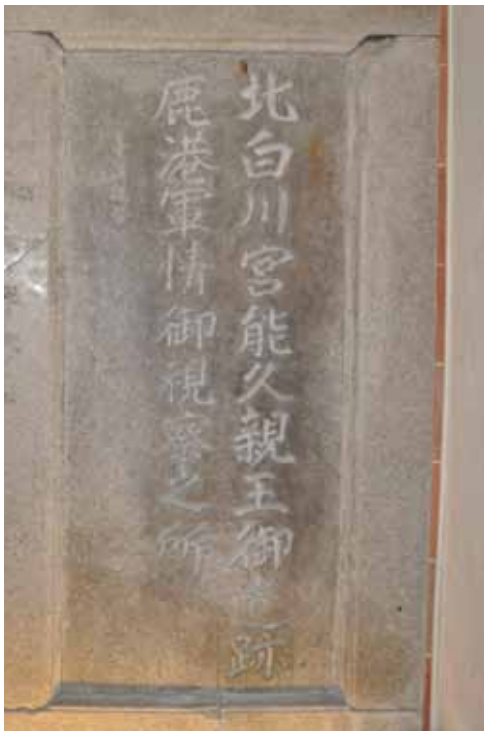 北白川宮能久親王御遺跡
鹿港軍情御視察之所